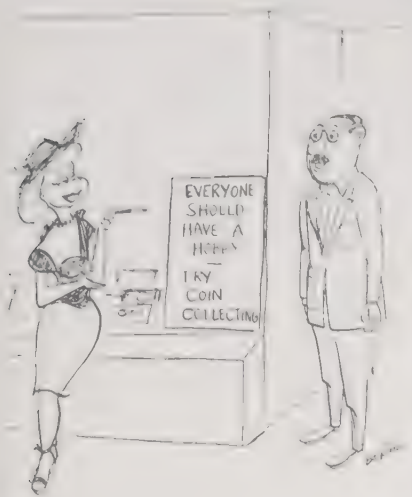 EVERYONE
SHOULD
HAVE A
HOBBY
TRY
COIN
COLLECTING